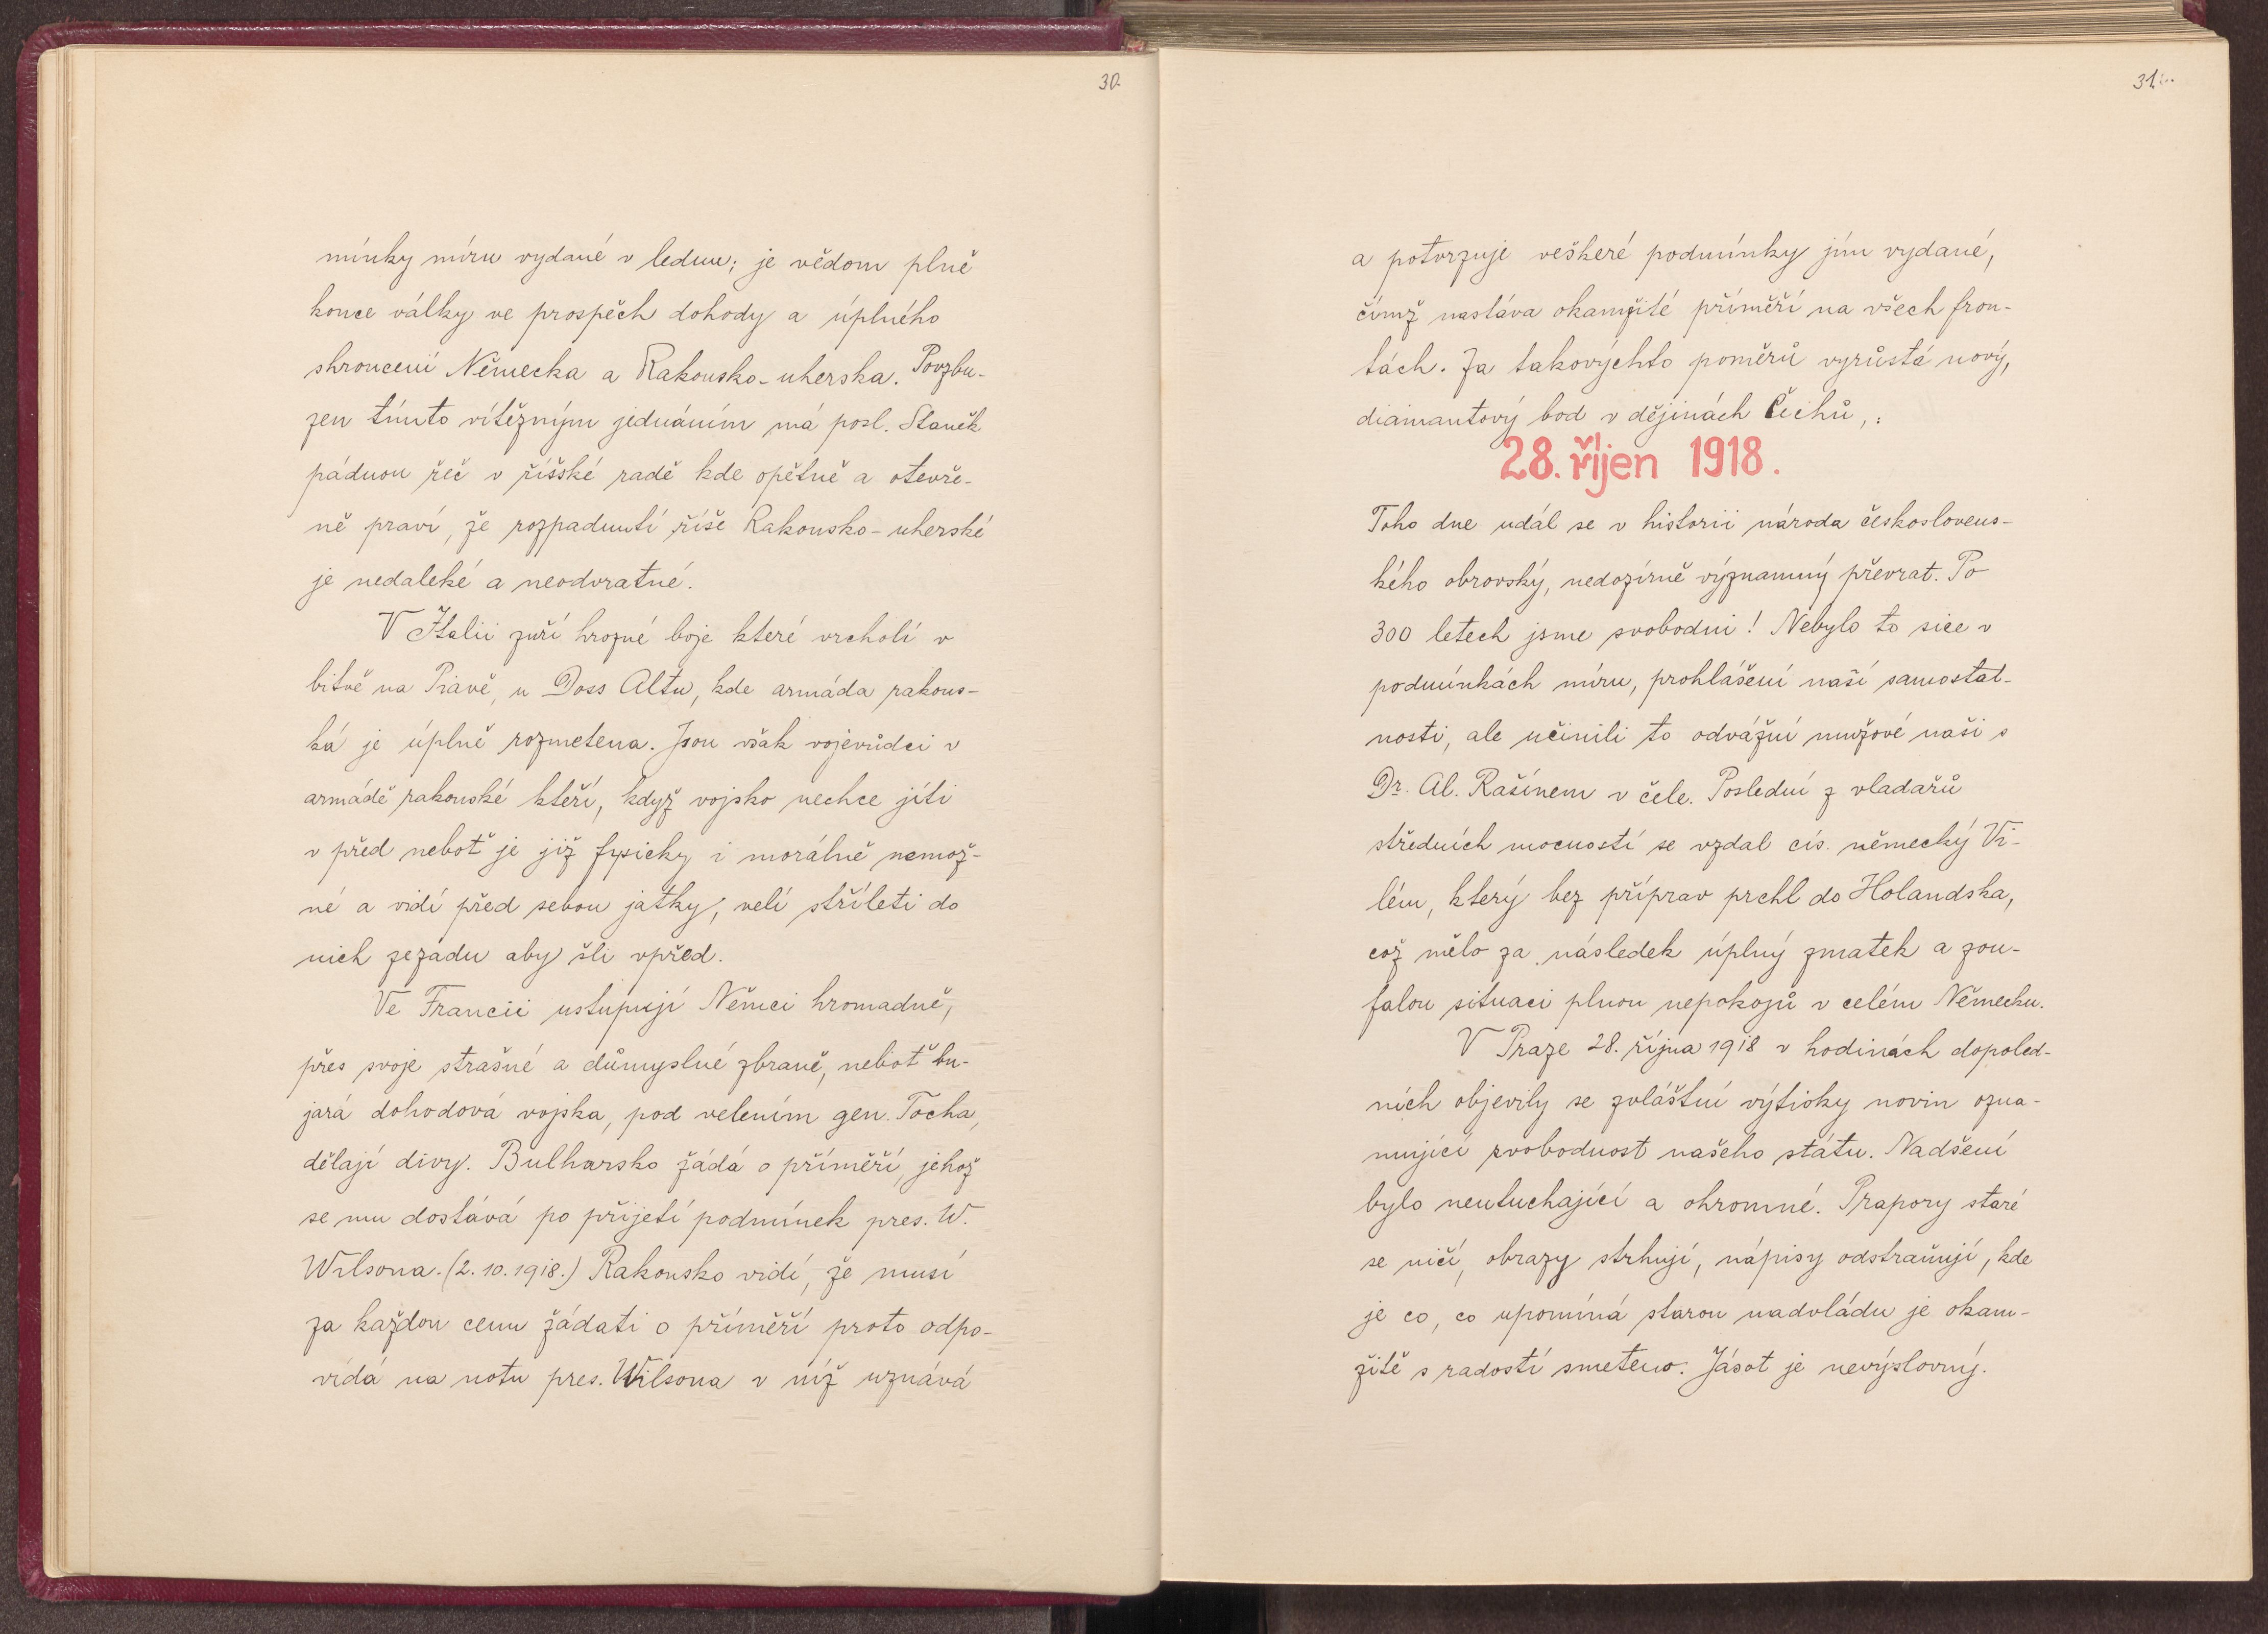 30.
mínky míru vydané v lednu; je vědom plně
konce války ve prospěch dohody a úplného
shroucení Německa a Rakousko-uherska. Povzbu-
zen tímto vítězným jednáním má posl. Staněk
pádnou řeč v říšské radě kde opětně a otevře-
ně praví, že rozpadnutí říše Rakousko-uherské
je nedaleké a neodvratné.
V Italii zuří hrozné boje které vrcholí v
bitvě na Piavě, u Doss Altu, kde armáda rakous-
ká je úplně rozmetena. Jsou však vojevůdci v
armádě rakouské kteří, když vojsko nechce jíti
v před neboť je již fysicky i morálně nemož-
né a vidí před sebou jatky, velí stříleti do
nich zezadu aby šli vpřed.
Ve Francii ustupují Němci hromadně,
přes svoje strašné a důmyslné zbraně, neboť bu-
jará dohodová vojska, pod velením gen. Focha,
dělají divy. Bulharsko žádá o příměří, jehož
se mu dostává po přijetí podmínek pres. W.
Wilsona. (2. 10. 1918.) Rakousko vidí, že musí
za každou cenu žádati o příměří proto odpo-
vídá na notu pres. Wilsona v níž uznává
31.
a potvrzuje veškeré podmínky jím vydané,
čímž nastáva okamžité příměří na všech fron-
tách. Za takovýchto poměrů vyrůstá nový,
diamantový bod v dějinách Čechů,:
28. říjen 1918.
Toho dne udál se v historii národa českosloven-
kého obrovský, nedozírně významný převrat. Po
300 letech jsme svobodni! Nebylo to sice v
podmínkách míru, prohlášení naší samostat-
nosti, ale učinili to odvážní mužové naši s
Dr. Al. Rašínem v čele. Poslední z vladařů
středních mocností se vzdal cís. německý Vi-
lém, který bez příprav prchl do Holandska,
což mělo za následek úplný zmatek a zou-
falou situaci plnou nepokojů v celém Německu.
V Praze 28. října 1918 v hodinách dopoled-
ních objevily se zvláštní výtisky novin ozna-
mující svobodnost našeho státu. Nadšení
bylo neutuchající a ohromné. Prapory staré
se ničí, obrazy strhují, nápisy odstraňují, kde
je co, co upomíná starou nadvládu je okam-
žitě s radostí smeteno. Jásot je nevýslovný.